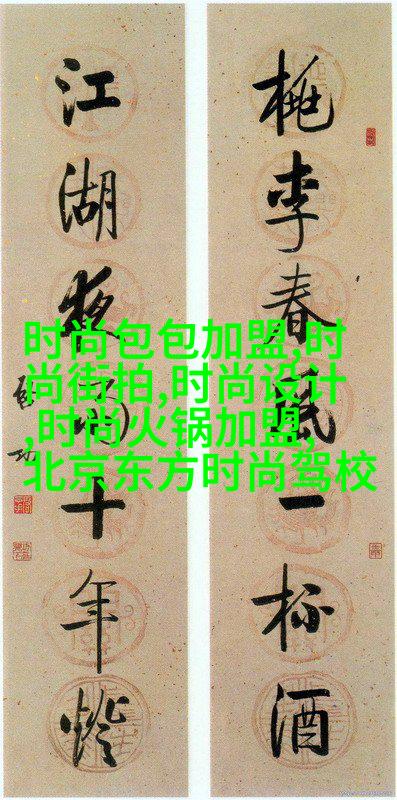 桃李春風一杯酒
江湖夜雨十年燈
启功
时尚包包加盟,时
尚街拍,时尚设计
,时尚火锅加盟,
北京东方时尚驾校